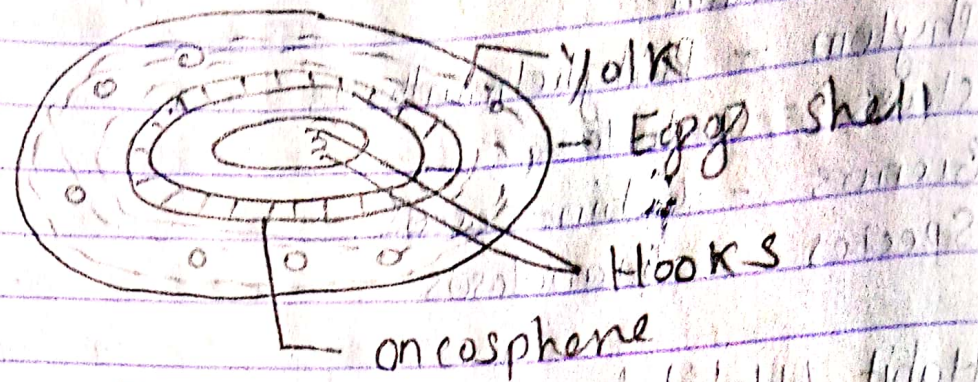 Yolk
Egg shell
Hooks
oncosphere